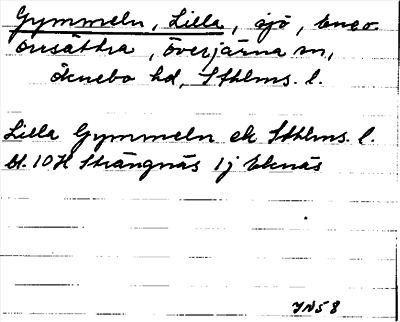 Gymmeln, Lilla, sjö, Eneo-
onsättra, Överjärna sn,
Öknebo hd, Sthlms. l.
Lilla Gymmeln ek Sthlms. l.
bl. 10H Strängnäs 1j Eknäs
YN58